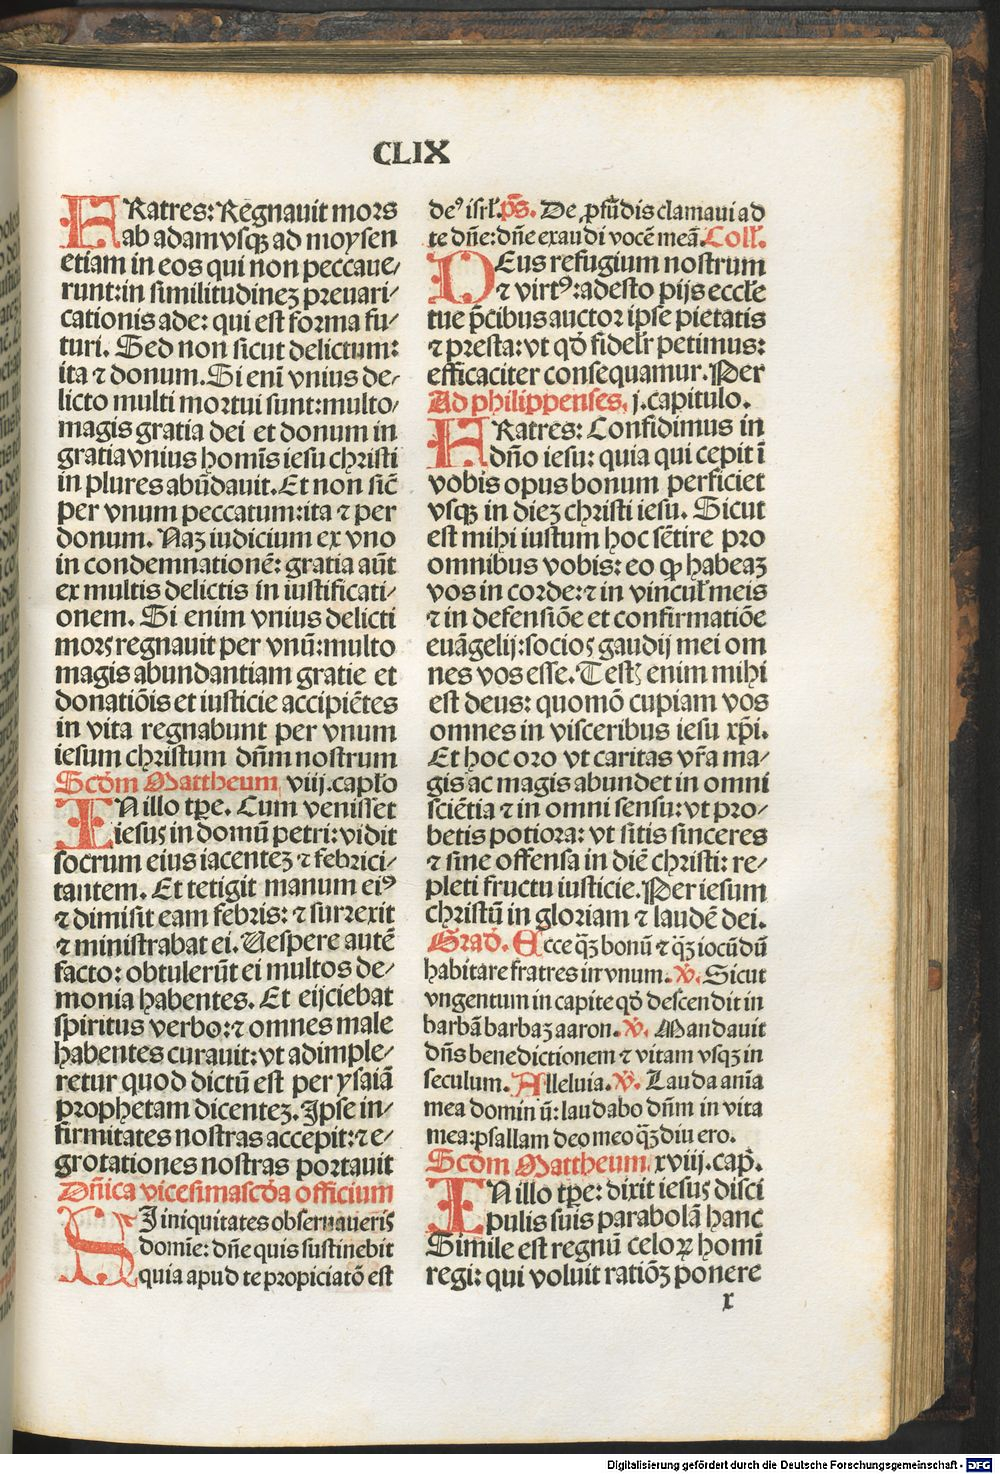 CLIX
FRatres: Regnauit mors
ab adam vsqꝫ ad moysen
etiam in eos qui non peccaue/
runt:in similitudineꝫ preuari/
cationis ade: qui est forma fu/
turi. Sed non sicut delictum:
ita ⁊ donum. Si eni vnius de/
licto multi mortui sunt:multo/
magis gratia dei et donum in
gratia vnius homīs iesu christi
in plures abūdauit. Et non sic̄
per vnum peccatum:ita ⁊ per
donum. Naꝫ iudicium ex vno
in condemnationē: gratia aūt
ex multis delictis in iustificati/
onem. Si enim vnius delicti
mors regnauit per vnū:multo
magis abundantiam gratie et
donatiōis et iusticie accipiētes
in vita regnabunt per vnum
iesum christum dn̄m nostrum
Scd̄m Mattheum viij.capl̄o
IN illo tꝑe. Cum venisset
iesus in domū petri: vidit
socrum eius iacenteꝫ ⁊ febrici/
tantem. Et tetigit manum eiꝰ
⁊ dimisit eam febris: ⁊ surrexit
⁊ ministrabat ei. Uespere autē
facto: obtulerūt ei multos de/
monia habentes. Et eijciebat
spiritus verbo:⁊ omnes male
habentes curauit: vt adimple/
retur quod dictū est per ysaiā
prophetam dicenteꝫ. Ipse in/
firmitates nostras accepit:⁊ e/
grotationes nostras portauit
Dn̄ica vicesimascd̄a officium
SI iniquitates obseruaueris
domīe: dn̄e quis sustinebit
quia apud te propiciatō est
deꝰ isrl̄. ps̄. De ꝓfūdis clamaui ad
te dn̄e: dn̄e exaudi vocē meā. Coll̄.
DEus refugium nostrum
⁊ virtꝰ: adesto pijs eccl̄e
tue p̄cibus auctor ipse pietatis
⁊ presta: vt qd̄ fidelr̄ petimus:
efficaciter consequamur. Per
Ad philippenses. j.capitulo.
FRatres: Confidimus in
dn̄o iesu: quia qui cepit ī
vobis opus bonum perficiet
vsqꝫ in dieꝫ christi iesu. Sicut
est mihi iustum hoc sētire pro
omnibus vobis: eo ꝙ habeaꝫ
vos in corde: ⁊ in vincul̄ meis
⁊ in defensiōe et confirmatiōe
euāgelij: socios gaudij mei om
nes vos esse. Testꝭ enim mihi
est deus: quomō cupiam vos
omnes in visceribus iesu xp̄i.
Et hoc oro vt caritas vr̄a ma/
gis ac magis abundet in omni
sciētia ⁊ in omni sensu: vt pro/
betis potiora: vt sitis sinceres
⁊ sine offensa in diē christi: re/
pleti fructu iusticie. Per iesum
christū in gloriam ⁊ laudē dei.
Grad̄. Ecce qꝫ̄ bonū ⁊ qꝫ̄ iocūdū
habitare fratres in vnum. ℣. Sicut
vngentum in capite qd̄ descendit in
barbā barbaꝫ aaron. ℣. Mandauit
dn̄s benedictionem ⁊ vitam vsqꝫ in
seculum. Alleluia. ℣. Lauda aīa
mea dominū: laudabo dn̄m in vita
mea: psallam deo meo qꝫ̄diu ero.
Scd̄m Mattheum xviij.cap̄.
IN illo tꝑe: dixit iesus disci
pulis suis parabolā hanc
Simile est regnū celoꝝ homī
regi: qui voluit ratiōꝫ ponere
x
Digitalisierung gefördert durch die Deutsche Forschungsgemeinschaft - DFG